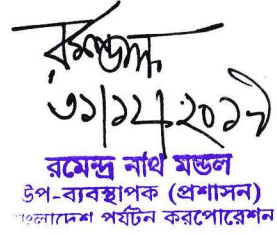 ৩১|১২|২০১৭
রমেন্দ্র নাথ মন্ডল
উপ-ব্যবস্থাপক (প্রশাসন)
বাংলাদেশ পর্যটন করপোরেশন